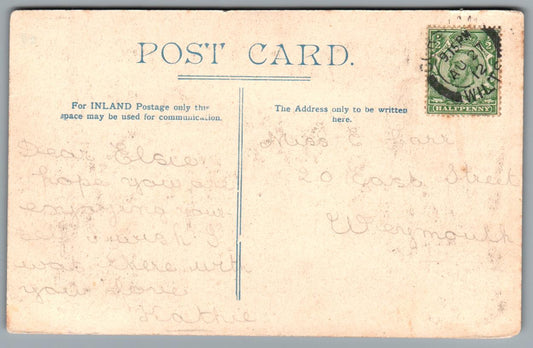 POST CARD.
For INLAND Postage only this
space may be used for communication.
The Address only to be written
here.
HALFPENNY
9 15 PM
AU
12
WILTS
Dear Elsie
hope you are
enjoying your
self wish I
was there with
you love
Kathie
Miss E
20 East Street
Weymouth